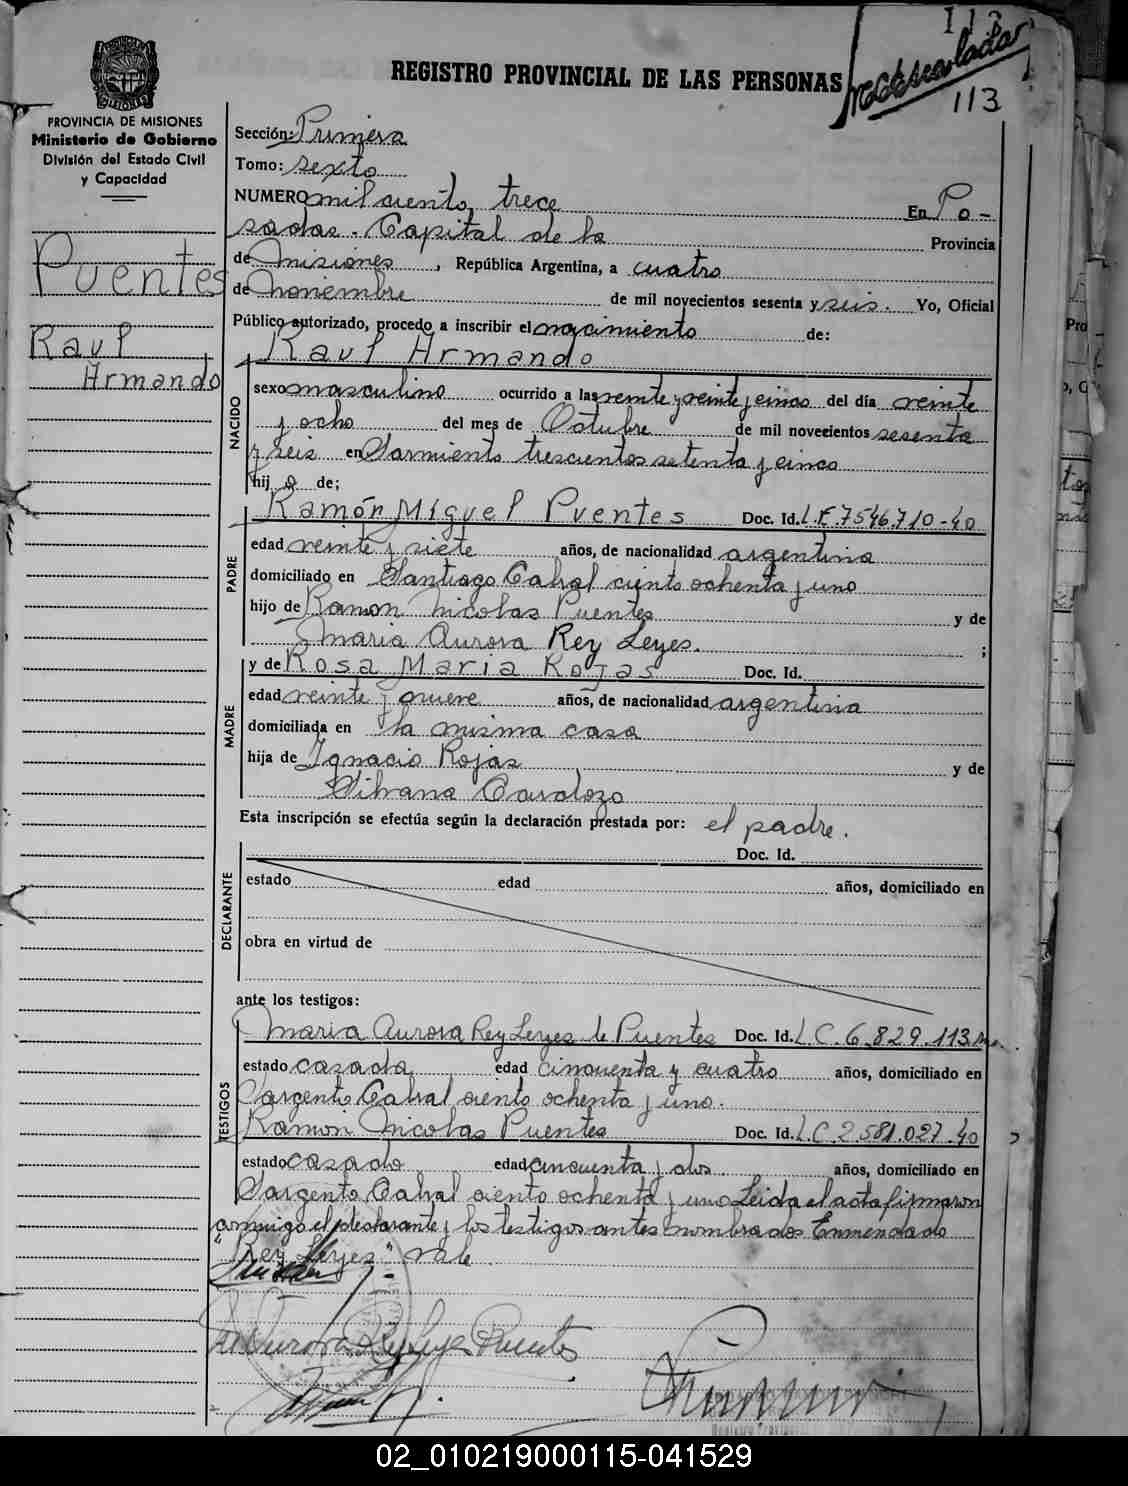 113
REGISTRO PROVINCIAL DE LAS PERSONAS
113
PROVINCIA DE MISIONES
Ministerio de Gobierno
División del Estado Civil
y Capacidad
Puentes
Raul
Armando
Sección: Primera
Tomo: sexto
NUMERO mil ciento trece En Po-
sadas. Capital de la Provincia
de Misiones, República Argentina, a cuatro
de noviembre de mil novecientos sesenta y seis. Yo, Oficial
Público autorizado, procedo a inscribir el nacimiento de:
Raul Armando
NACIDO
sexo masculino ocurrido a las veinte y veinte y cinco del día veinte
y ocho del mes de Octubre de mil novecientos sesenta
y seis en Sarmiento trescientos setenta y cinco
hijo de;
PADRE
Ramón Miguel Puentes Doc. Id. L.E. 7546.710-40
edad veinte y siete años, de nacionalidad argentina
domiciliado en Santiago Cabral ciento ochenta y uno
hijo de Ramon Nicolas Puentes y de
Maria Aurora Rey Leyes. ;
MADRE
y de Rosa Maria Rojas Doc. Id.
edad veinte y nueve años, de nacionalidad argentina
domiciliada en la misma casa
hija de Ignacio Rojas y de
Silvana Cardozo
Esta inscripción se efectúa según la declaración prestada por: el padre.
DECLARANTE
Doc. Id.
estado edad años, domiciliado en
obra en virtud de
ante los testigos:
TESTIGOS
Maria Aurora Rey Leyes de Puentes Doc. Id. L.C. 6.829.113
estado casada edad cincuenta y cuatro años, domiciliado en
Sargento Cabral ciento ochenta y uno.
Ramon Nicolas Puentes Doc. Id. L.C. 2.581.027.40
estado casado edad cincuenta y dos años, domiciliado en
Sargento Cabral ciento ochenta y uno Leida el acta firmaron
conmigo el declarante y los testigos antes nombrados Enmendado
"Rey Leyes" vale
Aurora Rey Leyes Puentes
02_010219000115-041529